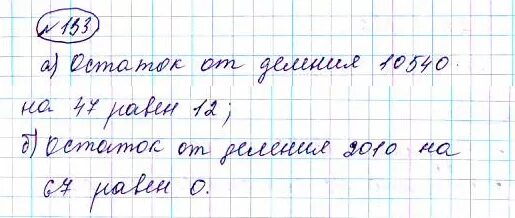 №193
а) Остаток от деления 10540
на 47 равен 12;
б) Остаток от деления 2010 на
67 равен 0.